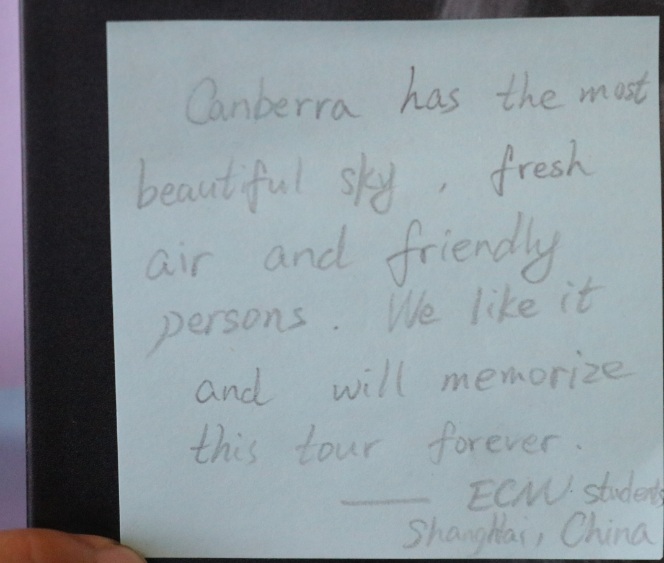 Canberra has the most
beautiful sky, fresh
air and friendly
persons. We like it
and will memorize
this tour forever.
—— ECNU students
ShangHai, China